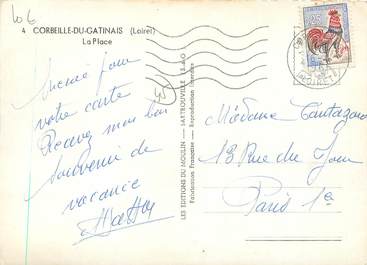 106
4 CORBEILLE-DU-GATINAIS (Loiret)
La Place
Merci pour
votre carte
Recevez mon bon
souvenir de
vacance
LES EDITIONS DU MOULIN - SARTROUVILLE (S.-&-O.)
Fabrication Française — Reproduction interdite
0,25
Madame
13 Rue du Jour
Paris 1e